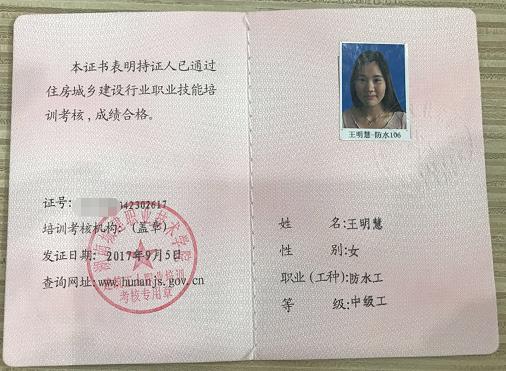 本证书表明持证人已通过
住房城乡建设行业职业技能培
训考核,成绩合格。
证号: 42302617
培训考核机构:(盖章)
发证日期: 2017年9月5日
查询网址:www.hunanjs.gov.cn
职业技术学院
考核专用章
王明慧-防水106
姓 名:王明慧
性 别:女
职业(工种):防水工
等 级:中级工